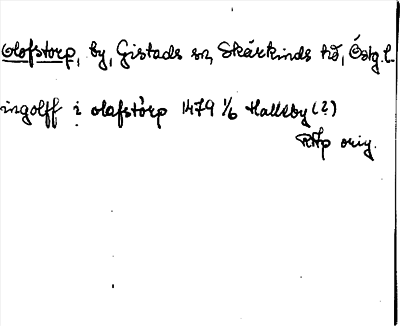 Olofstorp, by, Gistads sn, Skärkinds hd, Östg.l.
ingolff i olafstorp 1479 1/6 Hallsby (?)
RAp orig.